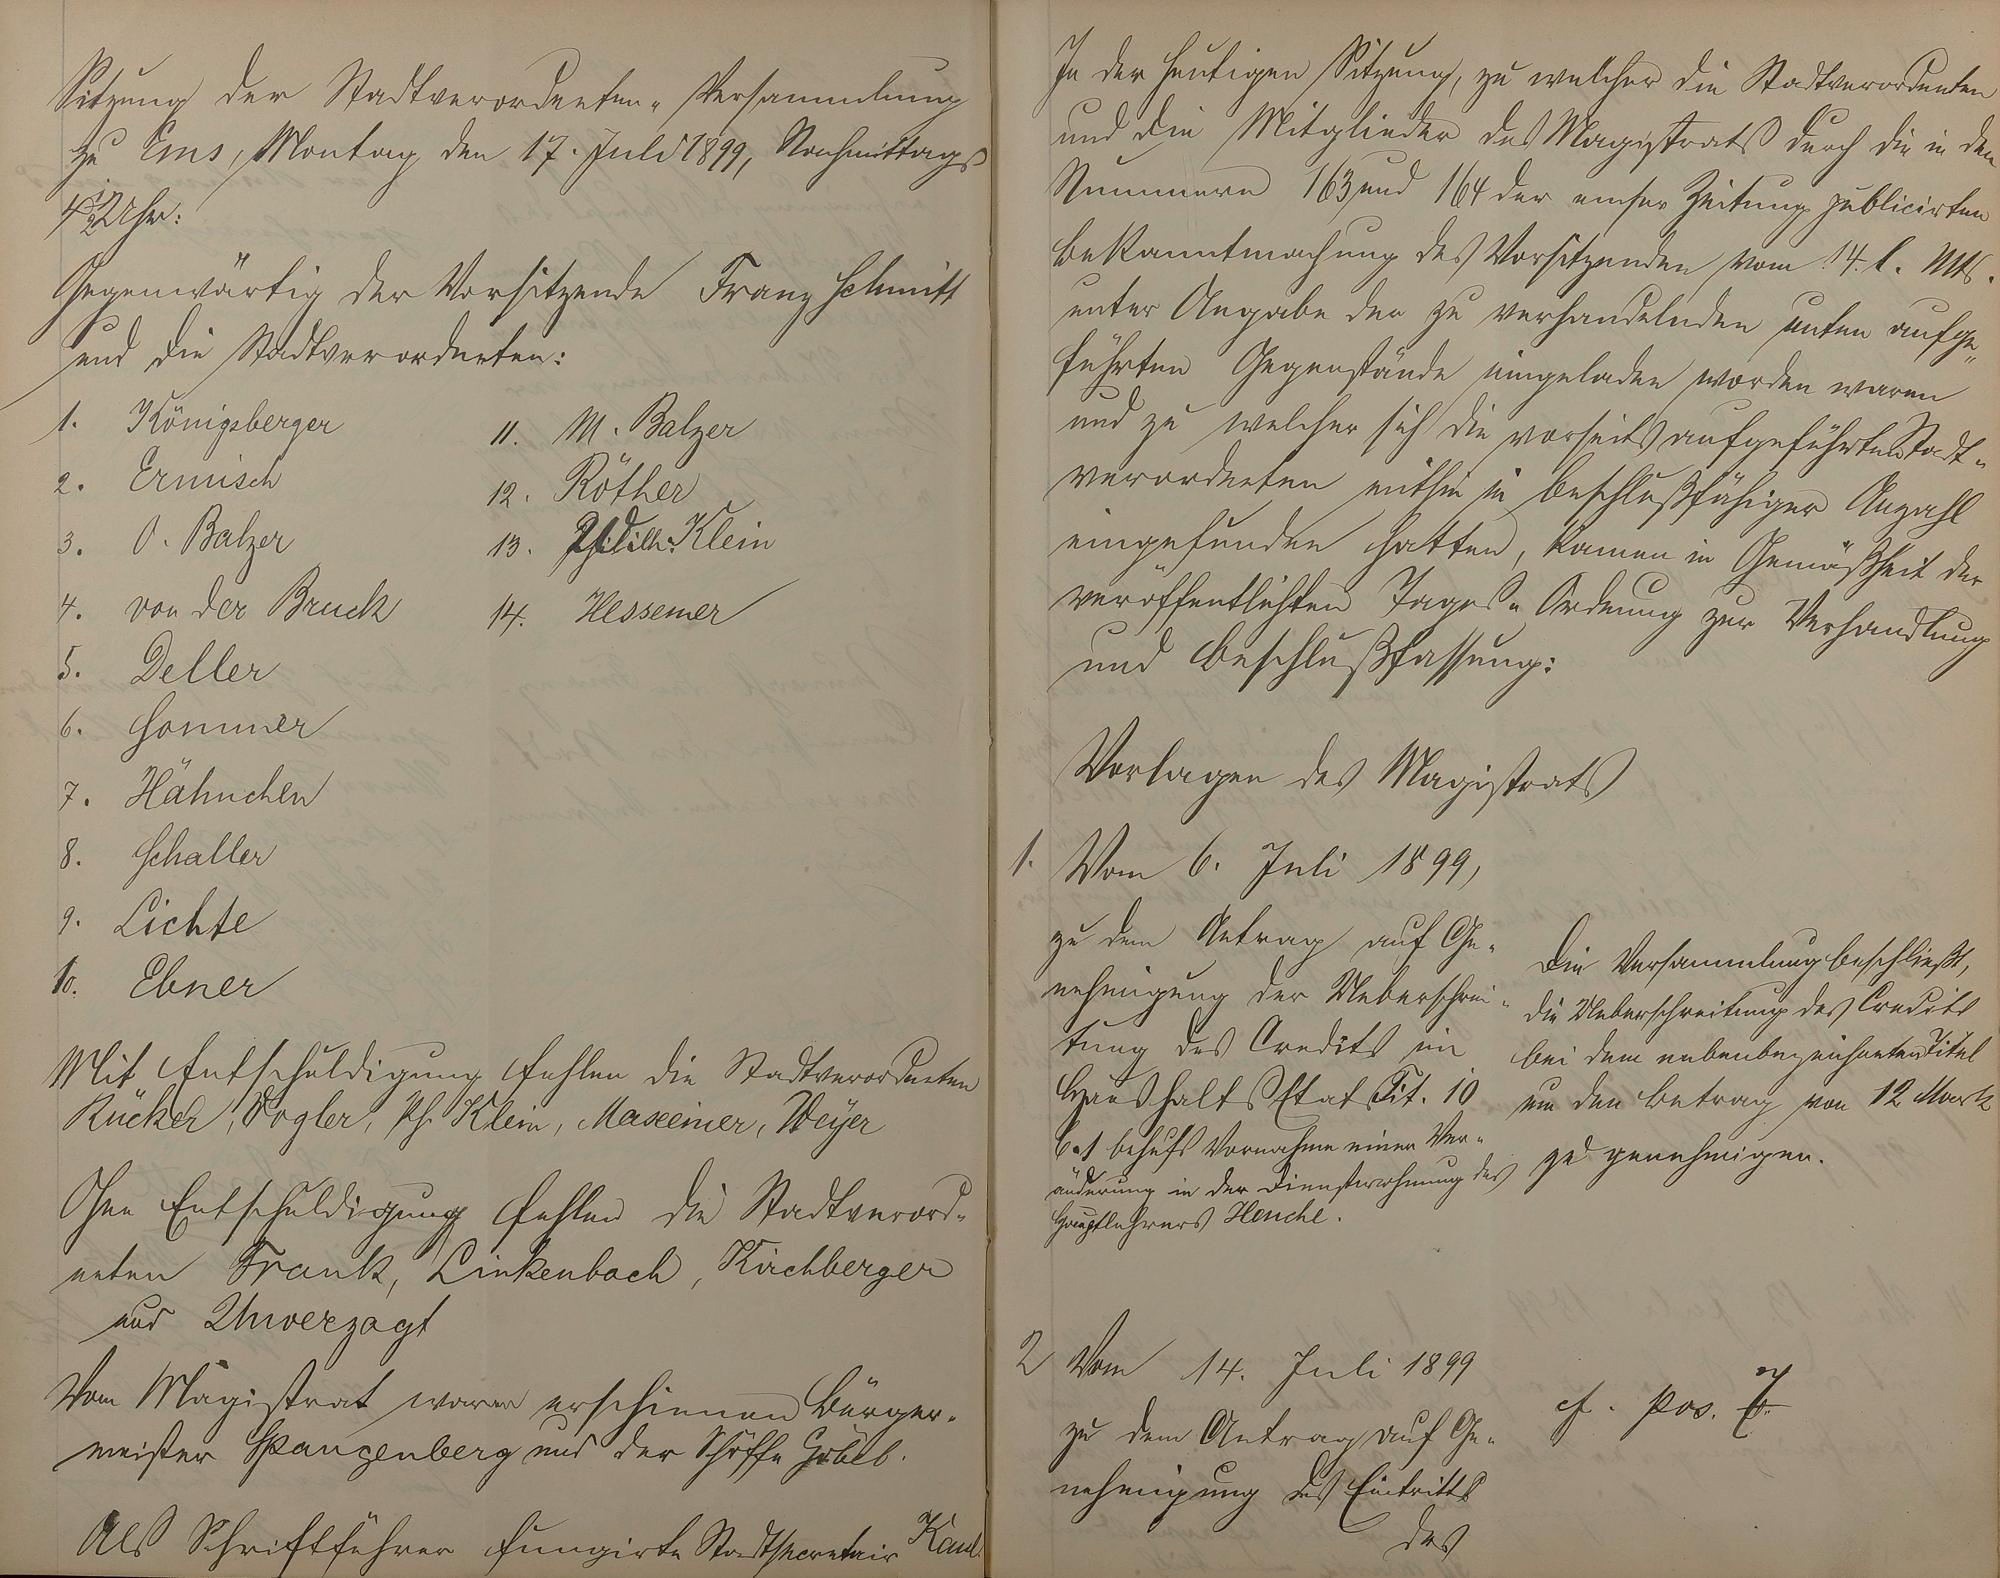 Sitzung der Stadtverordneten-Versammlung
zu Ems, Montag, den 17. Juli 1899, Nachmittags
4 1/2 Uhr:
Gegenwärtig der Vorsitzende Franz Schmitt
und die Stadtverordneten:
1. Königsberger
2. Ermisch
3. O. Balzer
4. von der Bruck
5. Deller
6. Sommer
7. Hähnchen
8. Schaller
9. Lichte
10. Ebner
11. M. Balzer
12. Röther
13. Klein
14. Hessemer
Mit Entschuldigung fehlen die Stadtverordneten
Rücker, Vogler, Ph. Klein, Maxeiner, Weyer
Ohne Entschuldigung fehlen die Stadtverord-
neten Frank, Linkenbach, Kirchberger
und Unverzagt
Vom Magistrat waren erschienen Bürger-
meister Spangenberg und der Schöffe Göbel.
Als Schriftführer fungirte Stadtsecretair Kaul.
In der heutigen Sitzung, zu welcher die Stadtverordneten
und die Mitglieder des Magistrats durch die in den
Nummern 163 und 164 der Emser Zeitung publicirten
Bekanntmachung des Vorsitzenden vom 14. l. Mts.
unter Angabe der zu verhandelnden unten aufge-
führten Gegenstände eingeladen worden waren
und zu welcher sich die vorseits aufgeführten Stadt-
verordneten mithin in beschlußfähiger Anzahl
eingefunden hatten, kamen in Gemäßheit der
veröffentlichten Tages-Ordnung zur Verhandlung
und Beschlußfassung:
Vorlagen des Magistrats
1. Vom 6. Juli 1899,
zu dem Antrag auf Ge-
nehmigung der Ueberschrei-
tung des Credits im
Haushalts Etat Tit. 10
6.1 behufs Vornahme einer Ver-
änderung in der Dienstwohnung des
Hauptlehrers Henche.
Die Versammlung beschließt,
die Ueberschreitung des Credits
bei dem nebenbezeichneten Titel
um den Betrag von 12 Mark
zu genehmigen.
2 Vom 14. Juli 1899
zu dem Antrag auf Ge-
nehmigung des Eintritts
des
cf. pos.